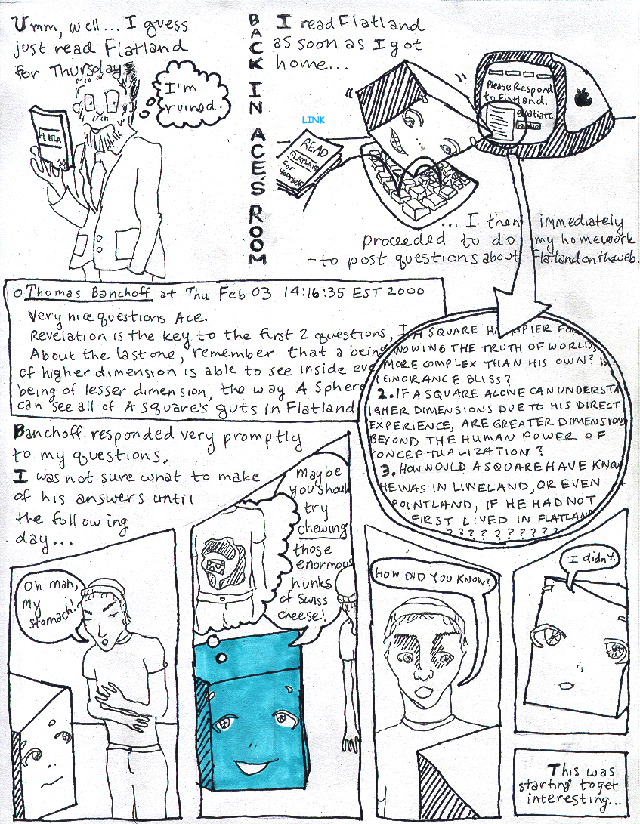 Umm, well... I guess
just read Flatland
for Thursday.
I'm
ruined.
BACK IN ACE'S ROOM
I read Flatland
as soon as I got
home...
LINK
READ
Please Respond
to Flatland.
... I then immediately
proceeded to do my homework
- to post questions about Flatland on the web.
o Thomas Banchoff at Thu Feb 03 14:16:35 EST 2000
Very nice questions Ace.
Revelation is the key to the first 2 questions,
About the last one, remember that a being
of higher dimension is able to see inside
being of lesser dimension, the way A Sphere
can see all of A Square's guts in Flatland
A SQUARE HAPPIER
KNOWING THE TRUTH OF WORLD
MORE COMPLEX THAN HIS OWN?
IGNORANCE BLISS?
2. IF A SQUARE ALONE CAN UNDERSTA
HIGHER DIMENSIONS DUE TO HIS DIRECT
EXPERIENCE, ARE GREATER DIMENSIONS
BEYOND THE HUMAN POWER OF
CONCEPTUALIZATION?
3. HOW WOULD A SQUARE HAVE KNOW
HE WAS IN LINELAND, OR EVEN
POINTLAND, IF HE HAD NOT
FIRST LIVED IN FLATLAND
? ? ? ? ? ? ? ? ?
Banchoff responded very promptly
to my questions,
I was not sure what to make
of his answers until
the following
day...
Oh man,
My
stomach..
Maybe
you should
try
chewing
those
enormous
hunks
of Swiss
cheese!
HOW DID YOU KNOW?
I didn't.
This was
starting to get
interesting...